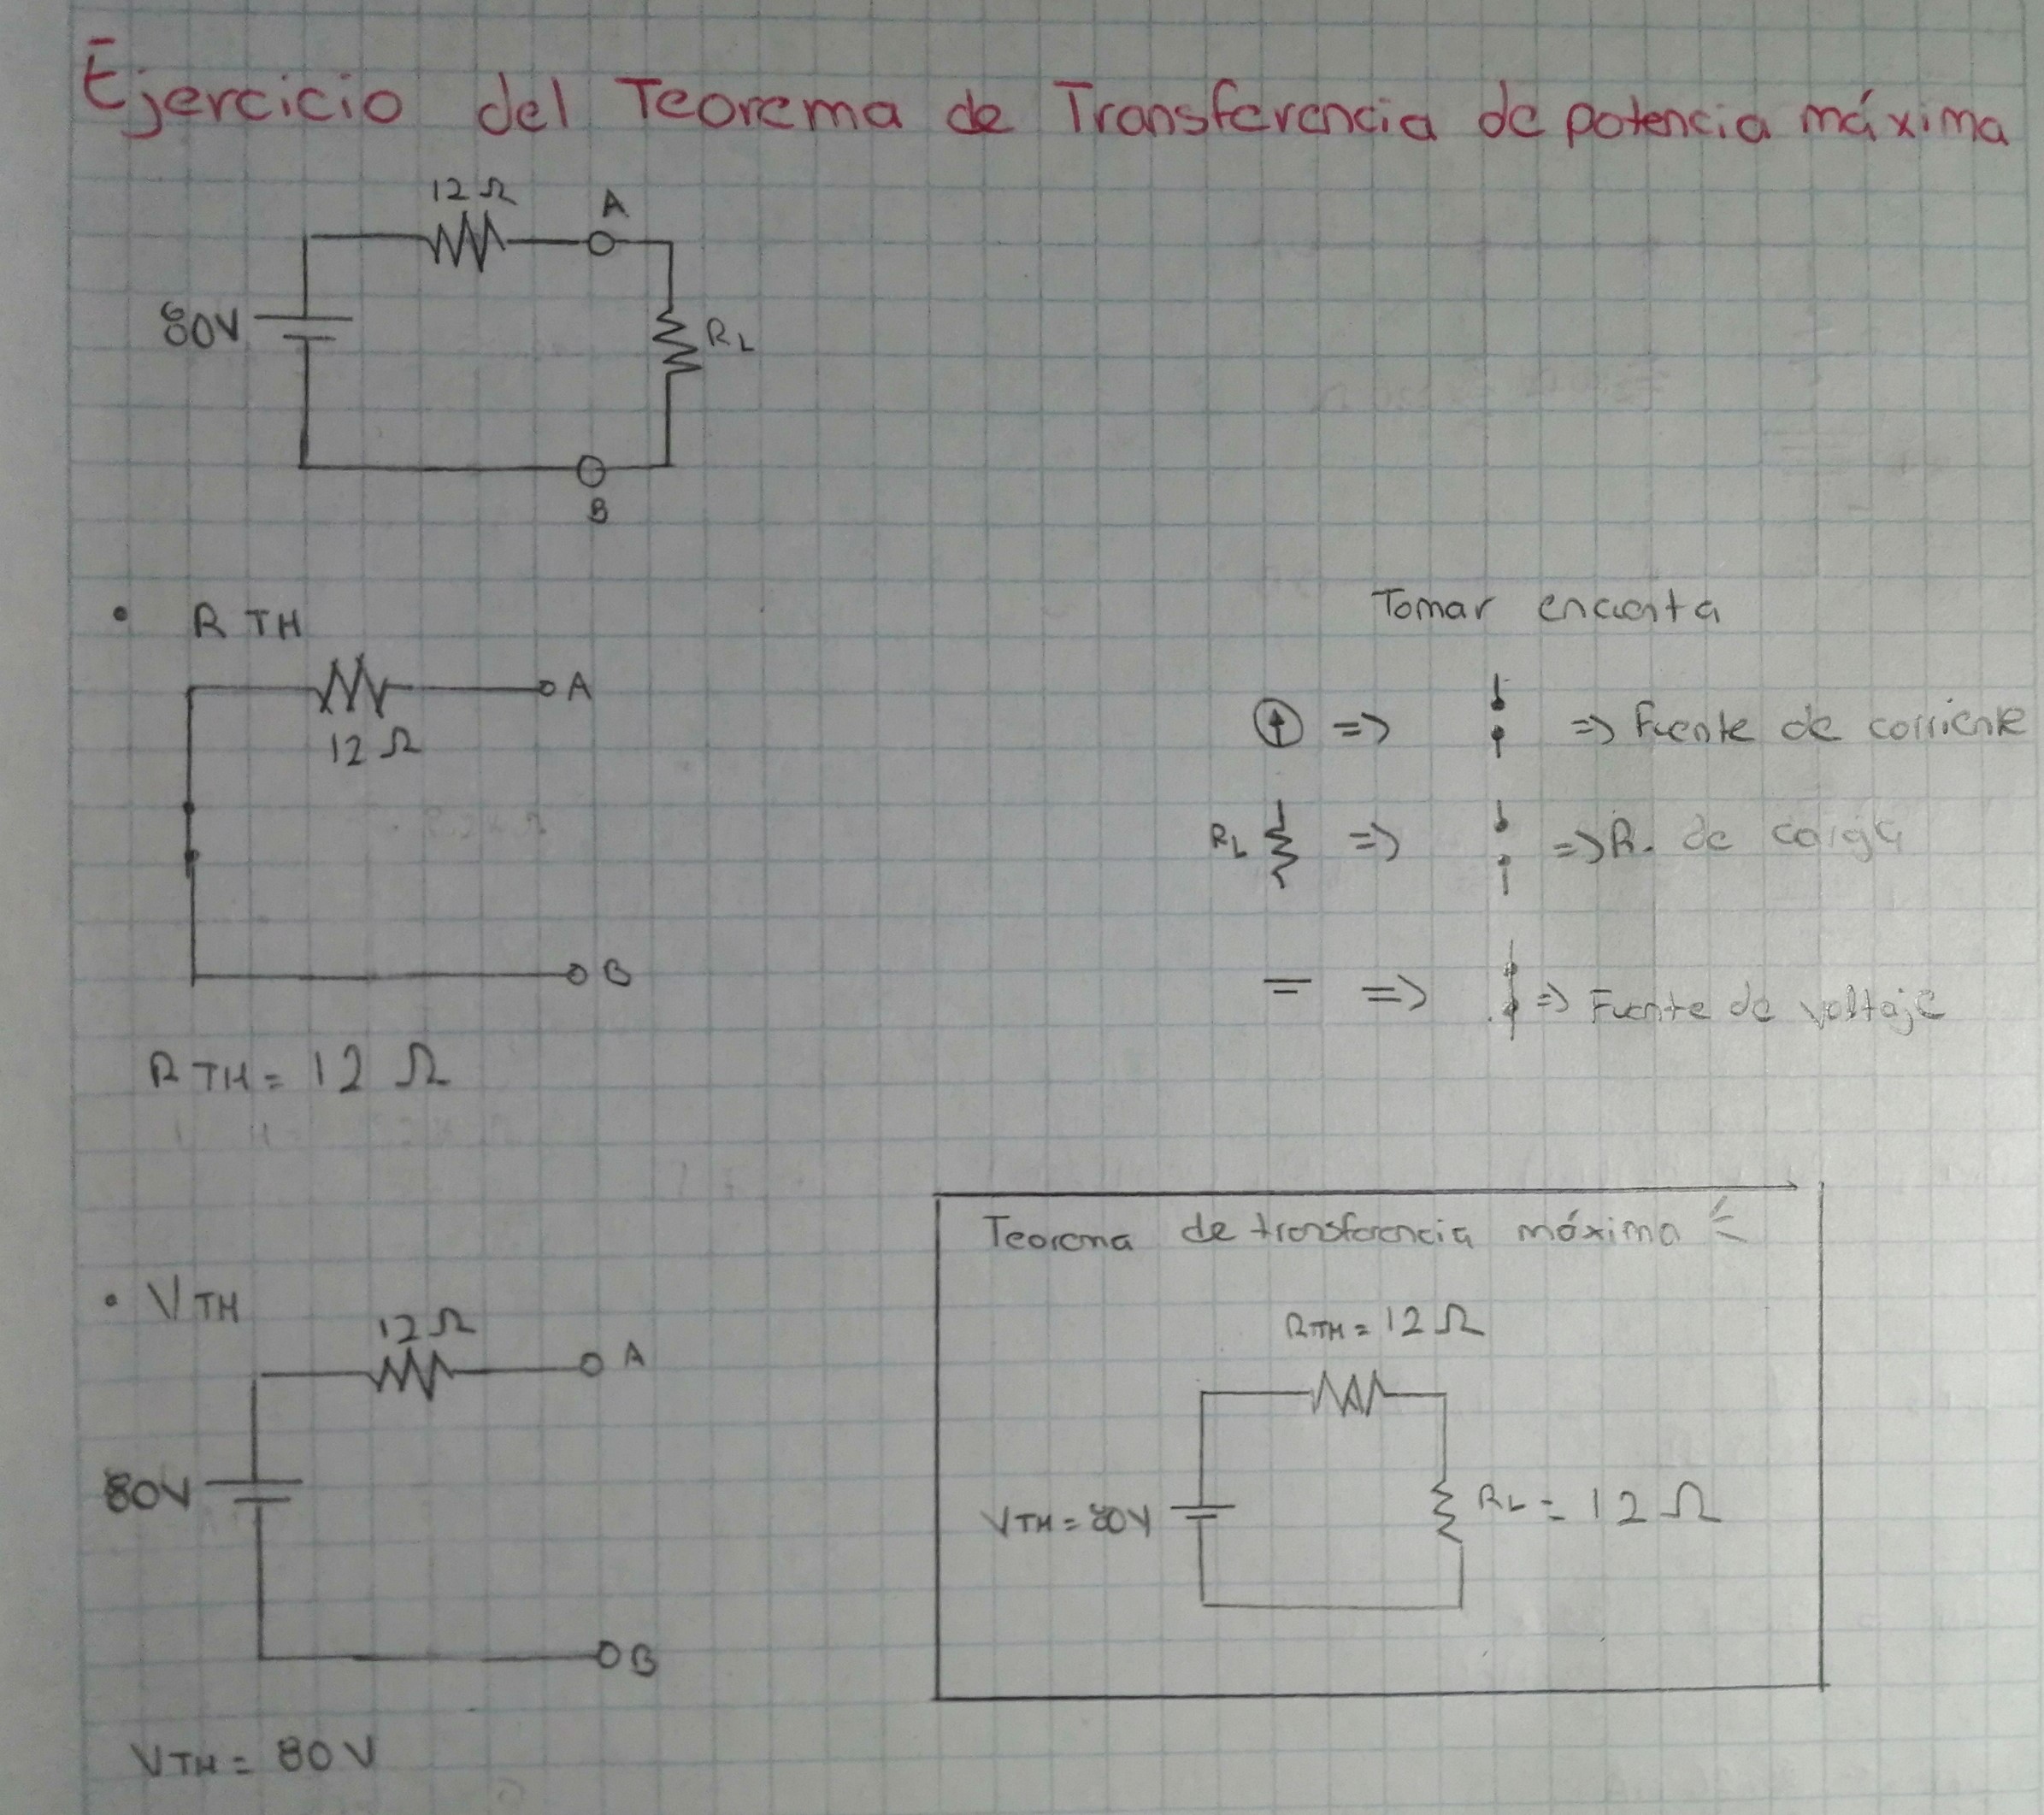 Ejercicio del Teorema de Transferencia de potencia máxima
12 Ω
A
80V
RL
B
• RTH
A
12 Ω
B
RTH = 12 Ω
Tomar encuenta
=> => Fuente de corriente
RL => => R. de carga
=> => Fuente de voltaje
• VTH
12 Ω
A
80V
B
VTH = 80V
Teorema de transferencia máxima
RTH = 12 Ω
VTH = 80V
RL = 12 Ω